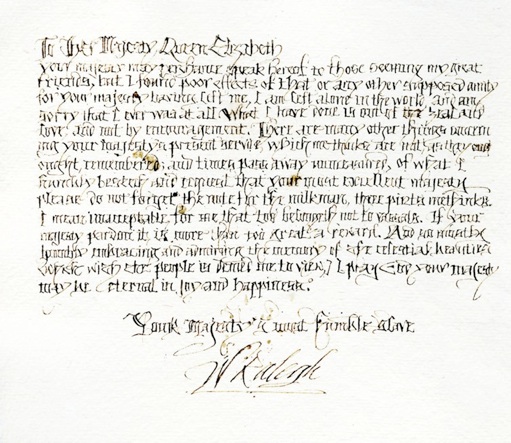 To Her Majesty Queen Elizabeth
your majesty may perchance speak hereof to those seeming my great
friends, but I founde poor effects of that or any other supposed amity
for your majesty having left me, I am left alone in the world, and am
sorry that I ever was at all. What I have done is out of zeal and
love and not by encouragement. There are many other things
your majesty's present service, which me thinks are not as they
ought remembered, and times pass away of what I
humbly beseech and request that your most excellent majesty
please do not forget the note for the milkman, three pintes methinks
I mean unacceptable for me that too not to If your
majesty pardone it is more than too great a reward. And so most
humbly embracing and admiring the memory of celestial beauties
with the people is denied me to view, I pray God your majesty
may be eternal in joy and happiness.
Your Majesty's most humble slave
W Ralegh